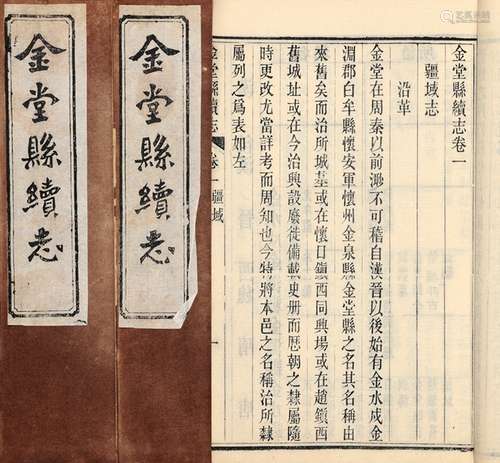 金堂縣續志卷一
疆域志
沿革
金堂在周秦以前渺不可稽自漢晉以後始有金水戍金
淵郡白牟縣懷安軍懷州金泉縣金堂縣之名其名稱由
來舊矣而治所城基或在懷日鎮西同興場或在趙鎮西
舊城址或在今治興設廢徙備載史冊而歷朝之隸屬隨
時更改尤當詳考而周知也今特將本邑之名稱治所隸
屬列之爲表如左
金堂縣續志 卷一疆域 一
金堂縣續志
金堂縣續志